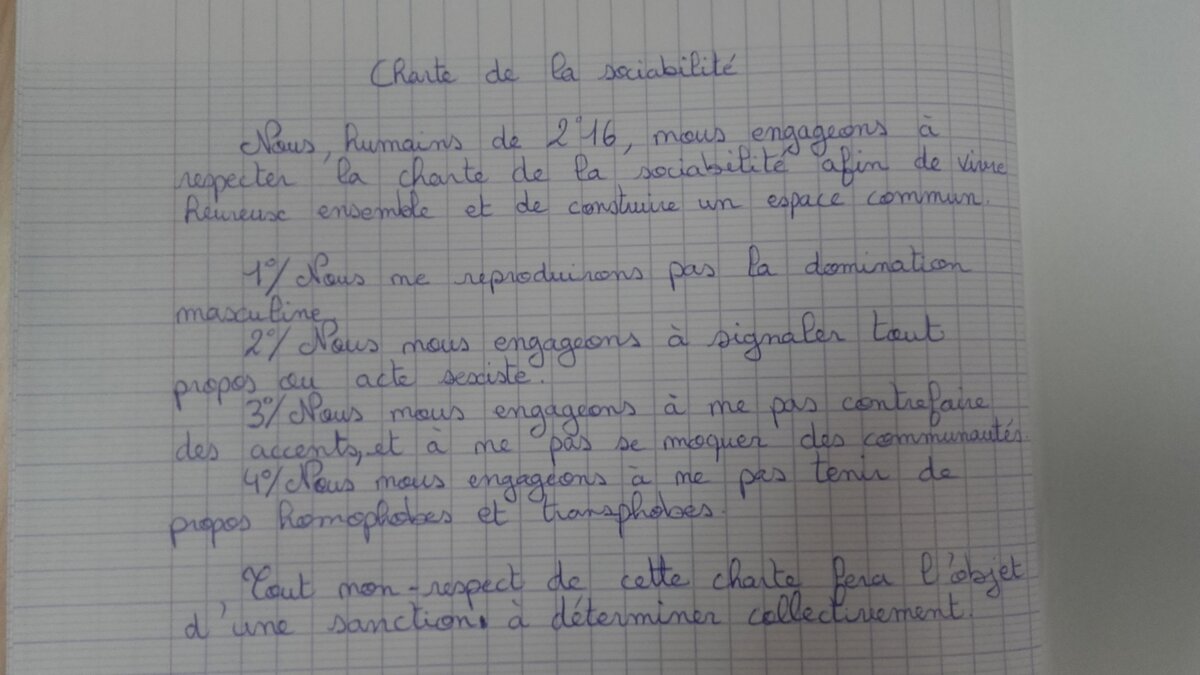 Charte de la sociabilité
Nous, humains de 2°16, nous engageons à
respecter la charte de la sociabilité afin de vivre
heureuse ensemble et de construire un espace commun.
1°/ Nous ne reproduirons pas la domination
masculine.
2°/ Nous nous engageons à signaler tout
propos ou acte sexiste.
3°/ Nous nous engageons à ne pas contrefaire
des accents, et à ne pas se moquer des communautés.
4°/ Nous nous engageons à ne pas tenir de
propos homophobes et transphobes.
Tout non-respect de cette charte fera l'objet
d'une sanction à déterminer collectivement.